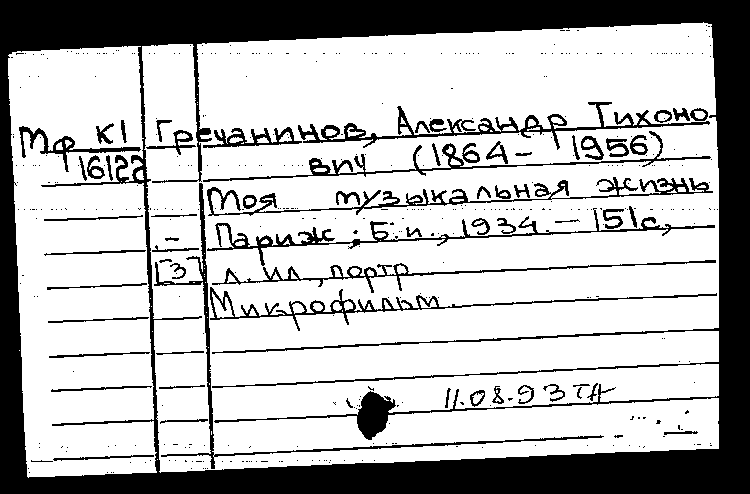 Мф К1 Гречанинов, Александр Тихоно-
16122 вич (1864 - 1956)
Моя музыкальная жизнь
.- Париж : Б.и., 1934. - 151с,
[3] л. ил, портр
Микрофильм.
11.08.93 ТА